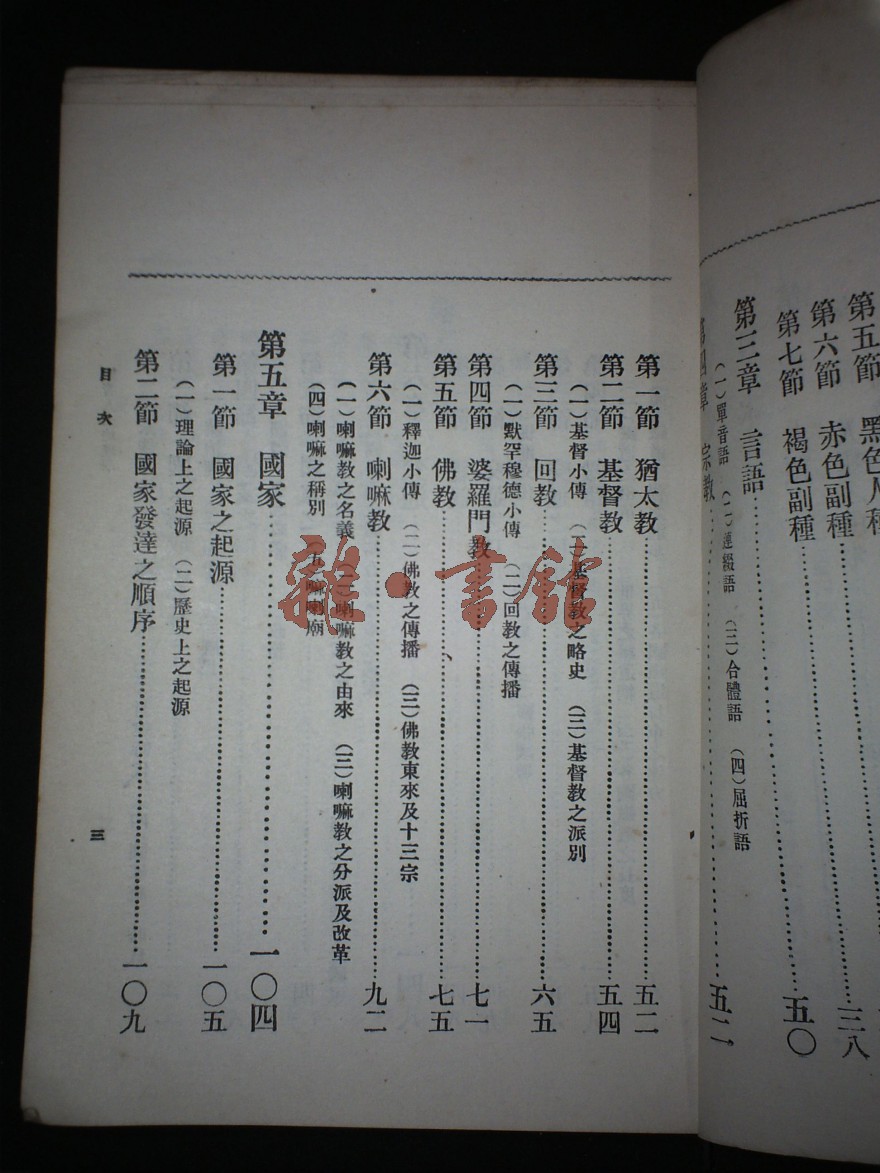 第五節 黑色人種
第六節 赤色副種 三八
第七節 褐色副種 五〇
第三章 言語
(一)單音語 (二)連綴語 (三)合體語 (四)屈折語
第四章 宗教 五二
第一節 猶太教 五二
第二節 基督教 五四
(一)基督小傳 (二)基督教之略史 (三)基督教之派別
第三節 回教 六五
(一)默罕穆德小傳 (二)回教之傳播
第四節 婆羅門教 七一
第五節 佛教 七五
(一)釋迦小傳 (二)佛教之傳播 (三)佛教東來及十三宗
第六節 喇嘛教 九二
(一)喇嘛教之名義 (二)喇嘛教之由來 (三)喇嘛教之分派及改革
(四)喇嘛之稱別 (五)嘛喇廟
第五章 國家 一〇四
第一節 國家之起源 一〇五
(一)理論上之起源 (二)歷史上之起源
第二節 國家發達之順序 一〇九
目次
三
雜·書館